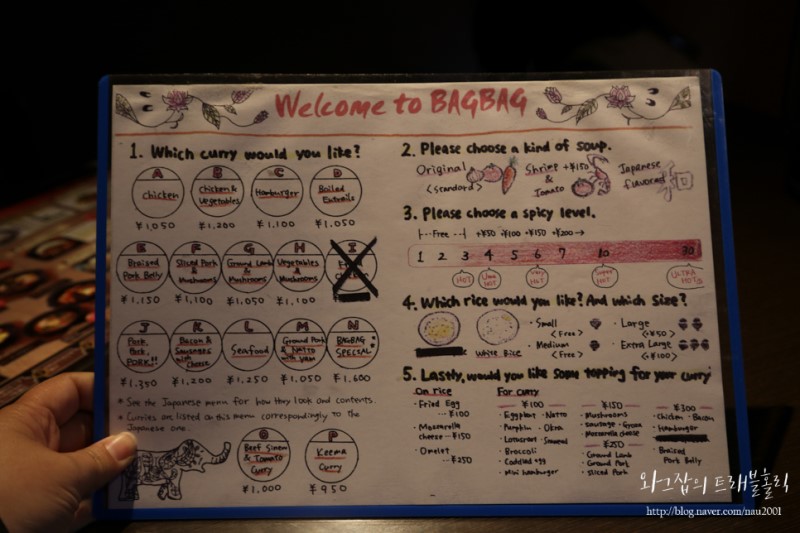 Welcome to BAGBAG
1. Which curry would you like?
A
Chicken
¥1,050
B
Chicken & Vegetables
¥1,200
C
Hamburger
¥1,100
D
Boiled Entrails
¥1,050
E
Braised Pork Belly
¥1,150
F
Sliced Pork & Mushrooms
¥1,100
G
Ground Lamb & Mushrooms
¥1,050
H
Vegetables & Mushrooms
¥1,100
I
J
Pork, Pork, PORK!!
¥1,350
K
Bacon & Sausages with Cheese
¥1,200
L
Seafood
¥1,250
M
Ground Pork & Natto with
¥1,050
N
BAGBAG SPECIAL
¥1,600
* See the Japanese menu for how they look and contents.
* Curries are listed on this menu correspondingly to the
Japanese one.
O
Beef Sinew & Tomato Curry
¥1,000
P
Keema Curry
¥950
2. Please choose a kind of soup.
Original
<standard>
Shrimp +¥150
& Tomato
Japanese
flavored
和
3. Please choose a spicy level.
Free +¥50 +¥100 +¥150 +¥200→
1 2 3 4 5 6 7 10 30
HOT
VERY HOT
SUPER HOT
ULTRA HOT
4. Which rice would you like? And which size?
White Rice
• Small
<Free>
• Medium
<Free>
• Large
<+¥50>
• Extra Large
<+¥100>
5. Lastly, would you like some topping for your curry
On rice
• Fried Egg
—¥100
• Mozzarella
cheese —¥150
• Omelet
—¥250
For curry
¥100
• Eggplant • Natto
• Pumpkin • Okra
• Broccoli
• Coddled egg
• Mini hamburger
¥150
• Mushrooms
• sausage • Gyoza
• Mozzarella cheese
¥250
• Ground Lamb
• Ground Pork
• Sliced Pork
¥300
• Chicken • Bacon
• Hamburger
• Braised
Pork Belly
와그잡의 트래블홀릭
http://blog.naver.com/nau2001